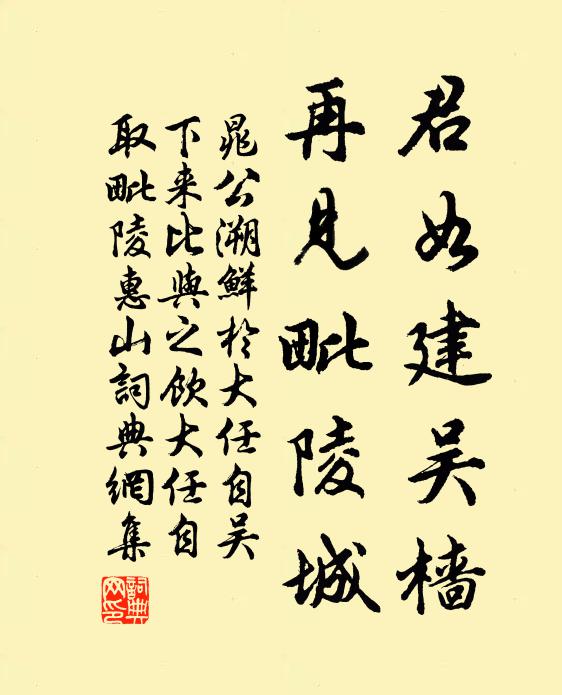 君如建吴檣
再見毗陵城
晁公溯鮮於大任自吴
下来比與之飲大任自
取毗陵惠山詞典網集
詞典
网印